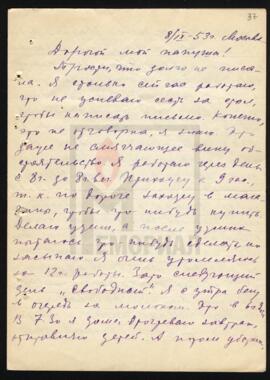 37
8/IX-53г. Москва
Дорогой мой папуша!
Прости, что долго не писа-
ла. Я столько сейчас работаю,
что не успеваю сесть за стол,
чтобы написать письмо. Конечно,
это не отговорка, я знаю. Это
даже не смягчающее вину об-
стоятельство. Я работаю через день
с 8г. до 8г. веч. Прихожу в 9 час.
т. к. по дороге захожу в мага-
зины, чтобы что нибудь купить
Делаю ужин, а после ужина
пытаюсь что нибудь сделать но
засыпаю. Я очень утомляюсь
за 12ч. работы. Зато следующий
день "свободный". Я с утра бегу
в очередь за молоком. Это в
В 7.30 я дома, бросаю завтрак,
отправляю детей. А потом уборка,
МЕМОРИАЛ